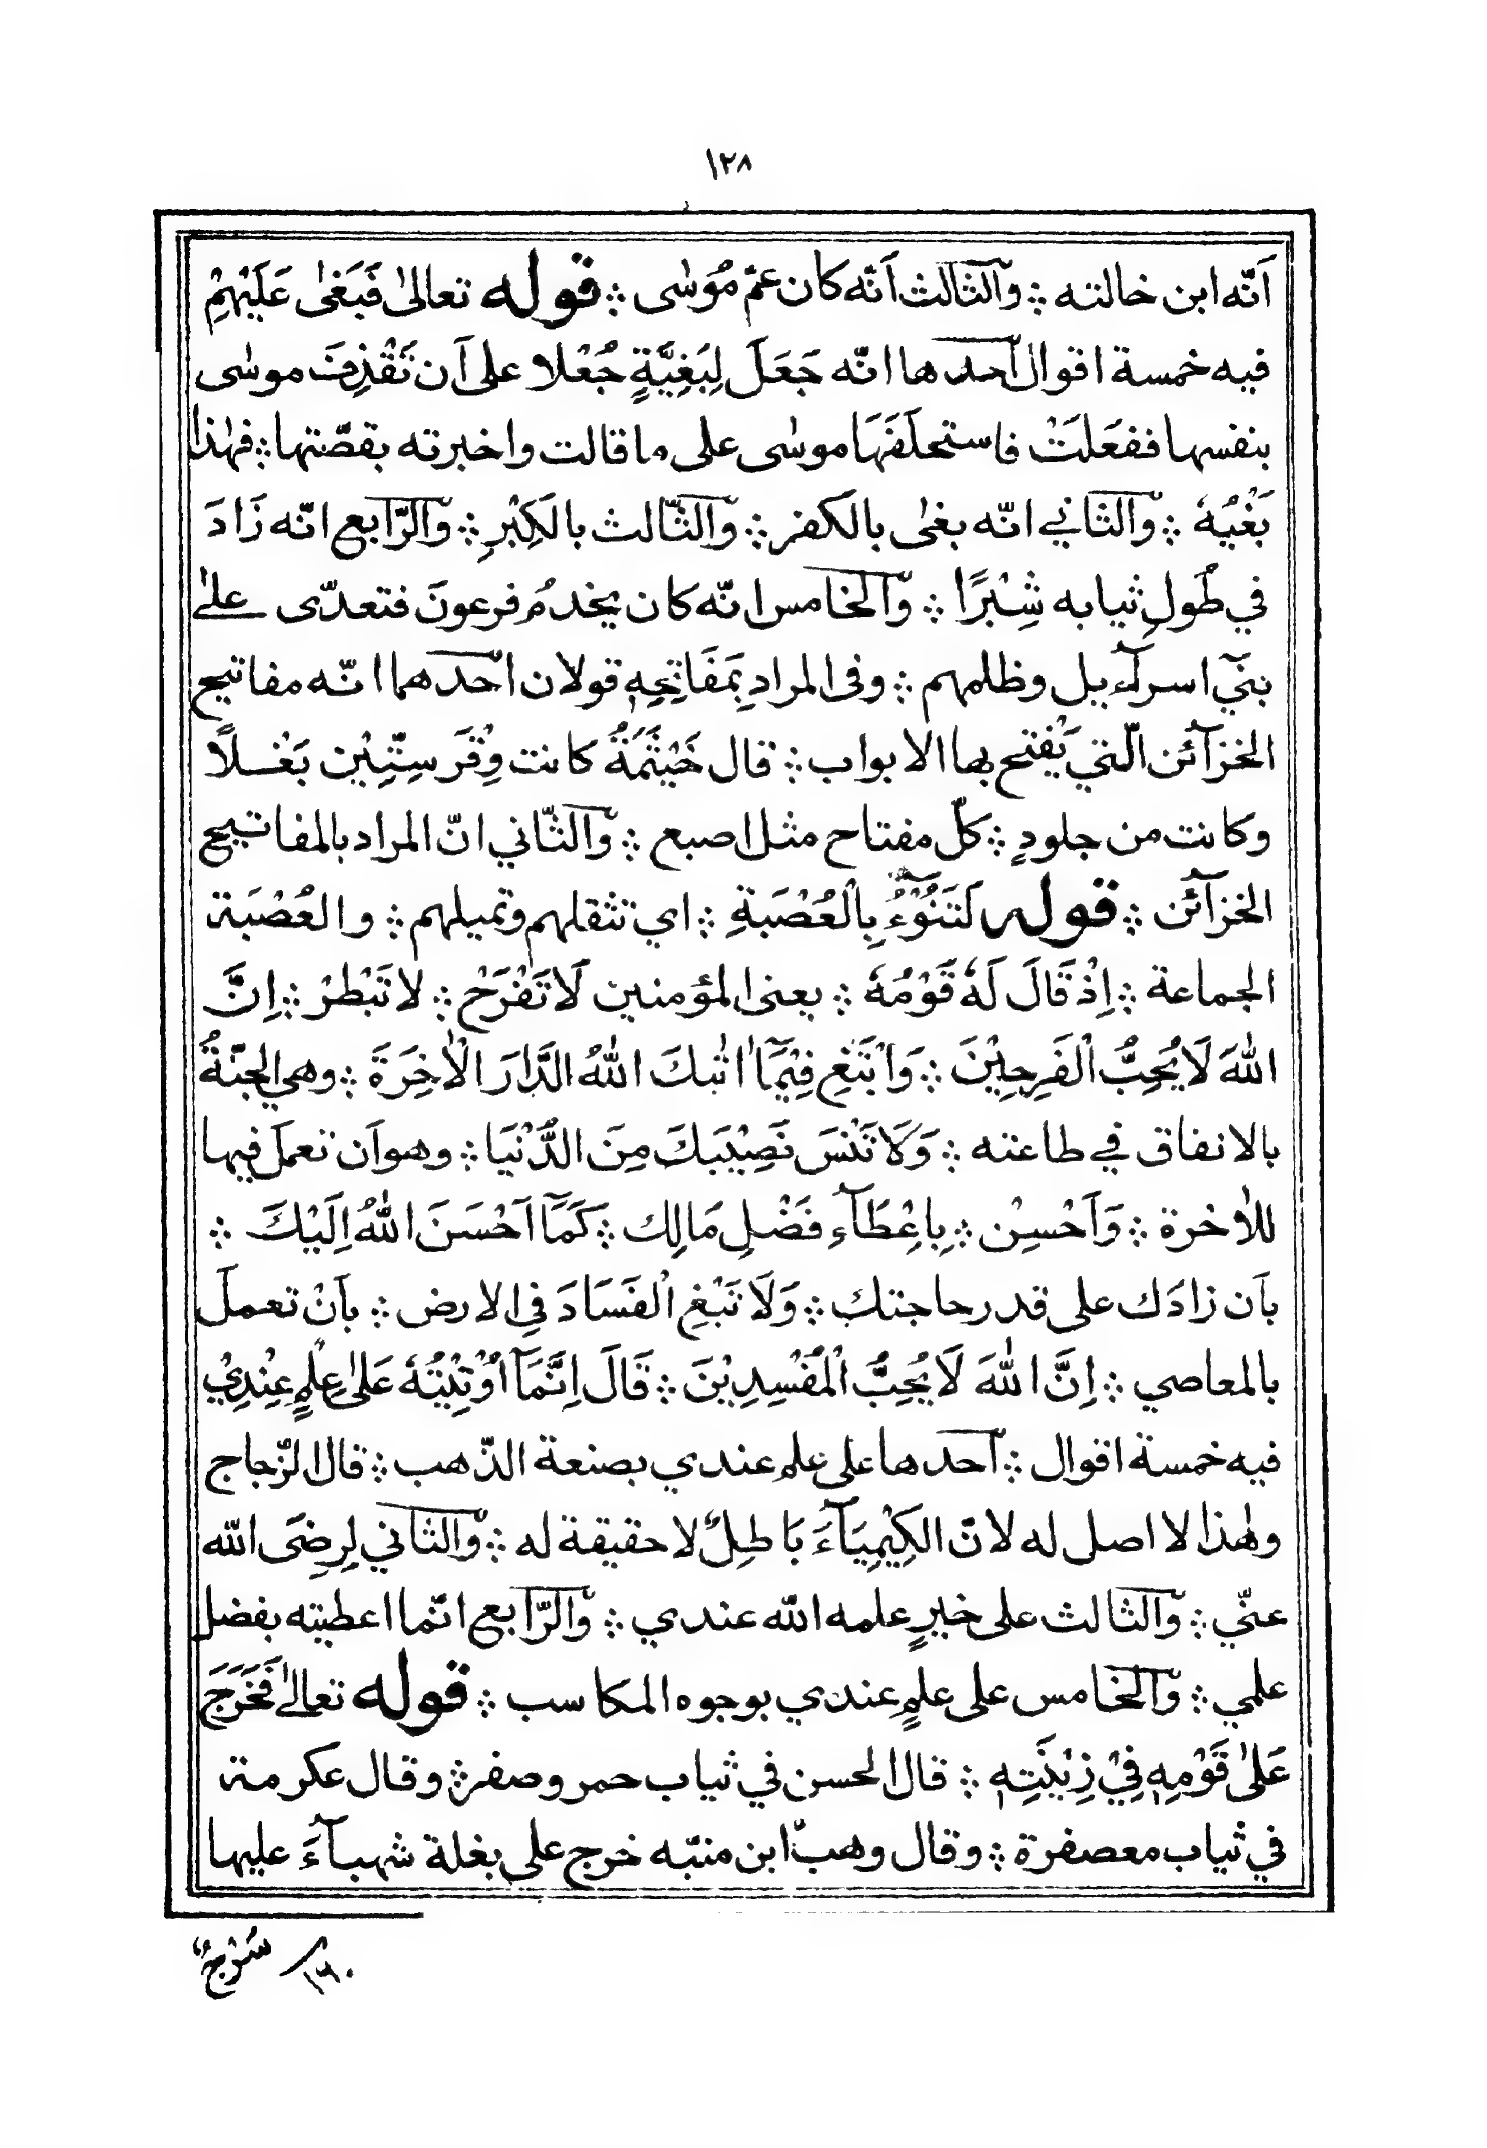 ١٢٨
اَنّه ابن خالته ؞ والثالث اَنّه كان عمّ مُوْسٰى ؞ قوله تعالىٰ فَبَغىٰ عَلَيْهِمْ
فيه خمسة اقوال اَحدها انّه جَعَلَ لِبَغِيَّةٍ جُعْلا على اَن تَقْذِفَ موسٰى
بنفسها ففعَلَتْ فاستحلَفَهَا موسٰى على ما قالت واخبرته بقصّتها ؞ فهٰذا
بَغْيُهٗ ؞ والثاني انّه بغىٰ بالكفر ؞ والثّالث بالكِبْرِ ؞ والرّابع انّه زَادَ
في طُولِ ثيابه شِبْرًا ؞ والخامس انّه كان يخدمُ فرعونَ فتعدّى علىٰ
بنيٓ اسرآءيل وظلمهم ؞ وفى المرادِ بمَفَاتِحِهٖ قولان اَحدهما انّه مفاتيح
الخزآئن الّتي يُفتح بها الابواب ؞ قال خَيْثَمَةُ كانت وِقْرَ سِتِّيْن بَغْلًا
وكانت من جلودٍ ؞ كلّ مفتاح مثل اصبع ؞ والثّاني انّ المراد بالمفاتيح
الخزآئن ؞ قوله لَتَنُوْٓءُ بِالْعُصْبَةِ ؞ اي تثقلهم وتميلهم ؞ والعُصْبَة
الجماعة ؞ اِذْ قَالَ لَهٗ قَوْمُهٗ ؞ يعنى المؤمنين لَا تَفْرَحْ ؞ لا تَبْطَرْ ؞ اِنَّ
اللهَ لَا يُحِبُّ الْفَرِحِيْنَ ؞ وَابْتَغِ فِيْمَآ اٰتٰىكَ اللهُ الدَّارَ الْاٰخِرَةَ ؞ وهي الجنّةُ
بالانفاق في طاعته ؞ وَلَا تَنْسَ نَصِيْبَكَ مِنَ الدُّنْيَا ؞ وهو اَن تعمل فيها
للاٰخرة ؞ وَاَحْسِنْ ؞ بِاِعْطَآءِ فَضْلِ مَالِك ؞ كَمَآ اَحْسَنَ اللهُ اِلَيْكَ ؞
بآن زادَك على قدر حاجتك ؞ وَلَا تَبْغِ الْفَسَادَ فِي الارض ؞ بآنْ تعمل
بالمعاصي ؞ اِنَّ اللهَ لَا يُحِبُّ الْمُفْسِدِيْنَ ؞ قَالَ اِنَّمَآ اُوْتِيْتُهٗ عَلىٰ عِلْمٍ عِنْدِيْ
فيه خمسة اقوال ؞ اَحدها على علم عندي بصنعة الذّهب ؞ قال الزّجاج
وهٰذا لا اصل له لانّ الكِيْمِيَآءَ بَاطِلٌ لا حقيقة له ؞ والثاني لِرِضَى الله
عنّي ؞ والثالث على خيرٍ علمه الله عندي ؞ والرّابع انّما اعطيته بفضل
علمي ؞ والخامس على علمٍ عندي بوجوه المكاسب ؞ قوله تعالىٰ فَخَرَجَ
عَلىٰ قَوْمِهٖ فِيْ زِيْنَتِهٖ ؞ قال الحسن في ثياب حمر وصفر ؞ وقال عكرمة
في ثياب معصفرة ؞ وقال وهب ابن منبّه خرج على بغلة شهبآءَ عليها
سَرْجٌ